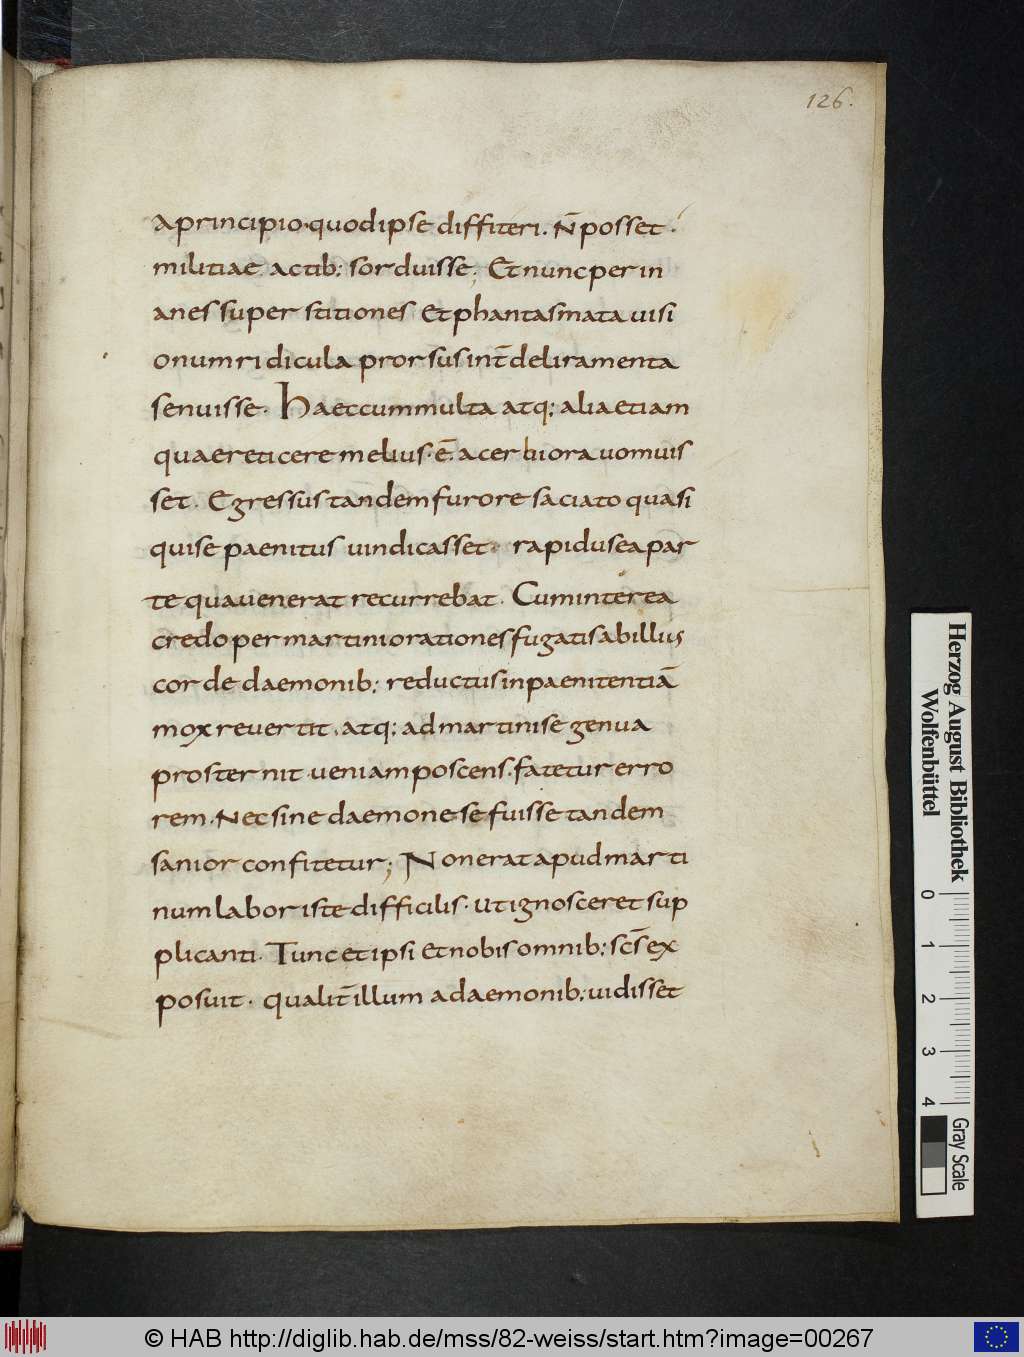 126.
a principio· quod ipse diffiteri. N̄ posset·
militiae actib; sorduisse; Et nunc per in
anes superstitiones et phantasmata uisi
onum ridicula prorsus int̄ deliramenta
senuisse· Haec cum multa atq; alia etiam
quae reticere melius· ē. acerbiora uomuis
set· Egressus tandem furore saciato quasi
qui se paenitus uindicasset· rapidus ea par
te qua uenerat recurrebat· Cum interea
credo per martini orationes fugatis ab illius
corde daemonib; reductus in paenitentiā
mox reuertit· atq; ad martini se genua
prosternit· ueniam poscens· fatetur erro
rem· Nec sine daemone se fuisse tandem
sanior confitetur; Non erat apud marti
num labor iste difficilis· ut ignosceret sup
plicanti· Tunc et ipsi et nobis omnib; scs̄ ex
posuit· qualit̄ illum a daemonib; uidisset
Herzog August Bibliothek
Wolfenbüttel
0 1 2 3 4
Gray Scale
© HAB http://diglib.hab.de/mss/82-weiss/start.htm?image=00267